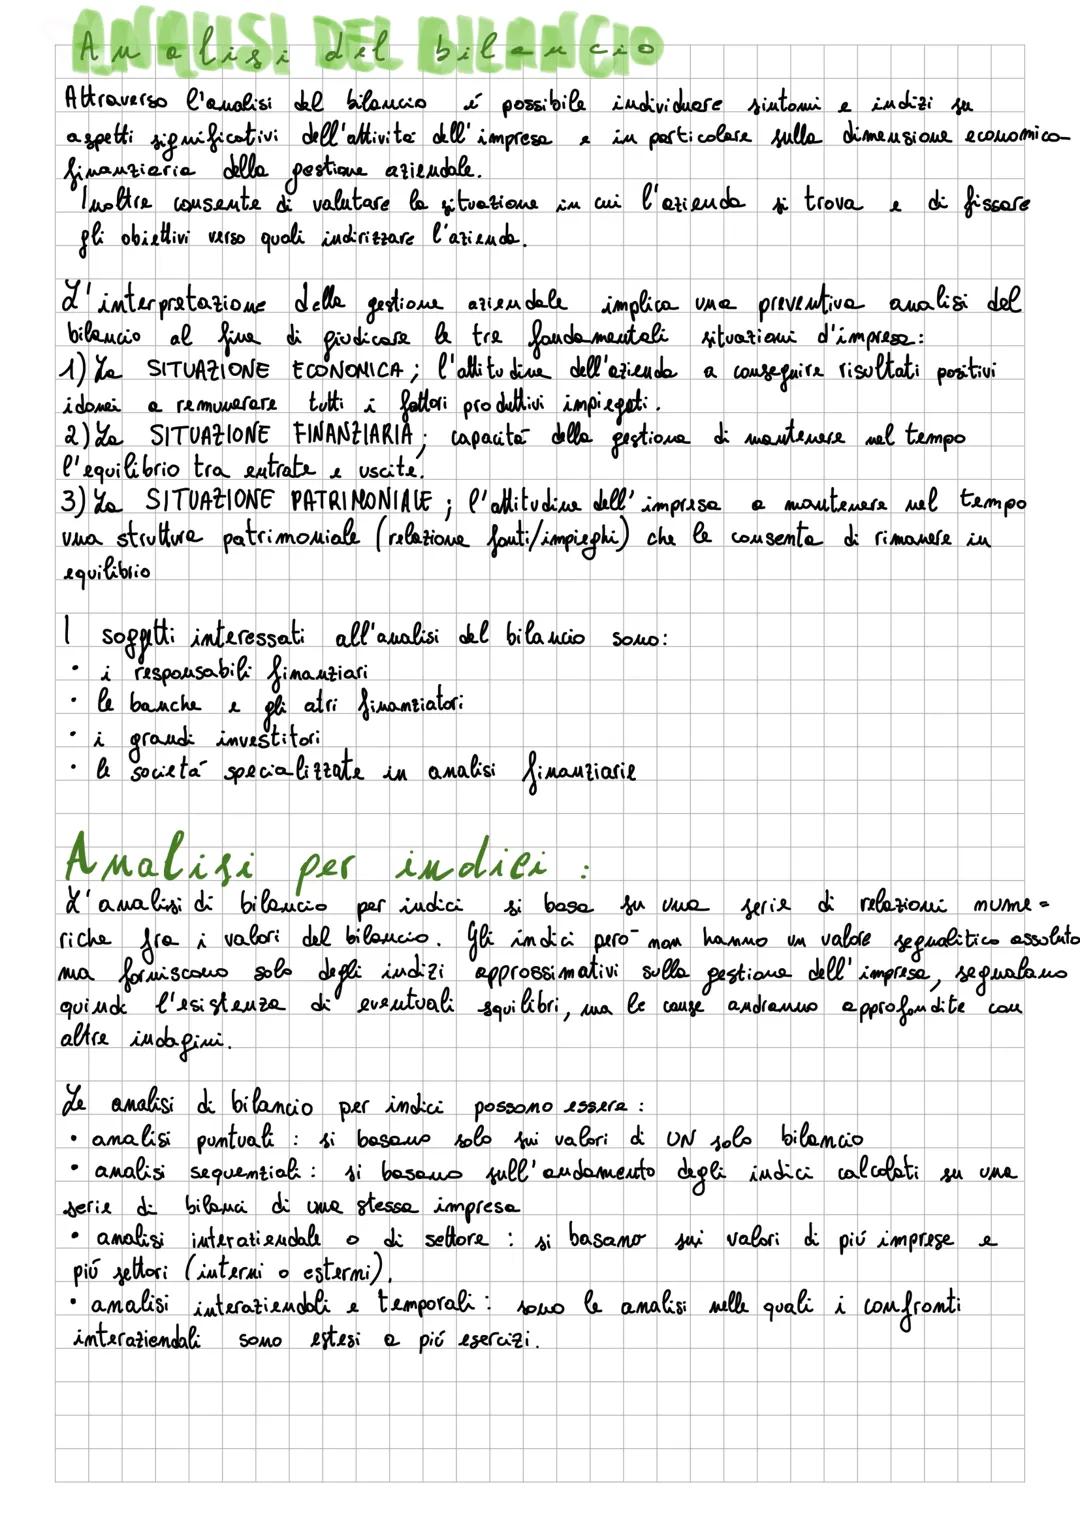 Analisi del bilancio
Attraverso l'analisi del bilancio é possibile individuare sintomi e indizi su
aspetti significativi dell'attivitá dell'impresa e in particolare sulla dimensione economico-
finanziaria della gestione aziendale.
Inoltre consente di valutare la situazione in cui l'azienda si trova e di fissare
gli obiettivi verso quali indirizzare l'azienda.
L'interpretazione della gestione aziendale implica una preventiva analisi del
bilancio al fine di giudicare le tre fondamentali situazioni d'impresa:
1) La SITUAZIONE ECONOMICA; l'attitudine dell'azienda a conseguire risultati positivi
idonei a remunerare tutti i fattori produttivi impiegati.
2) La SITUAZIONE FINANZIARIA; capacitá della gestione di mantenere nel tempo
l'equilibrio tra entrate e uscite.
3) La SITUAZIONE PATRIMONIALE; l'attitudine dell'impresa a mantenere nel tempo
una struttura patrimoniale (relazione fonti/impieghi) che le consenta di rimanere in
equilibrio
I soggetti interessati all'analisi del bilancio sono:
• i responsabili finanziari
• le banche e gli atri finanziatori
• i grandi investitori
• le societá specializzate in analisi finanziarie
Analisi per indici:
L'analisi di bilancio per indici si basa su una serie di relazioni nume=
riche fra i valori del bilancio. Gli indici peró non hanno un valore segnalitico assoluto
ma forniscono solo degli indizi approssimativi sulla gestione dell'impresa, segnalano
quindi l'esistenza di eventuali squilibri, ma le cause andranno approfondite con
altre indagini.
Le analisi di bilancio per indici possono essere:
• analisi puntuali: si basano solo sui valori di UN solo bilancio
• analisi sequenziali: si basano sull'andamento degli indici calcolati su una
serie di bilanci di una stessa impresa
• analisi interaziendale o di settore: si basano sui valori di piú imprese e
piú settori (interni o esterni).
• analisi interaziendali e temporali: sono le analisi nelle quali i confronti
interaziendali sono estesi a piú esercizi.